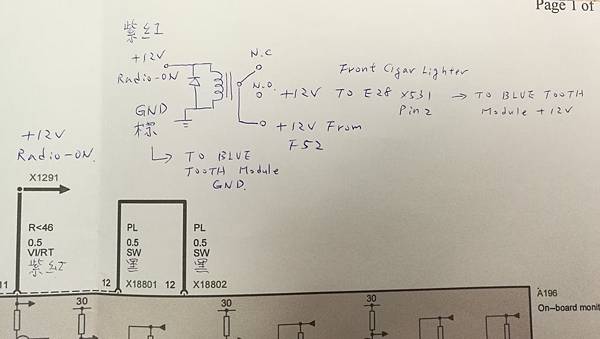 Page 1 of
紫紅
+12V
Radio-ON
N.C
N.O.
Front Cigar Lighter
+12V TO E28 X531 → TO BLUE TOOTH
Pin 2 Module +12V
GND
棕
+12V From
F52
TO BLUE
TOOTH Module
GND.
+12V
Radio-ON.
X1291
R<46
0.5
VI/RT
紫紅
PL
0.5
SW
黑
PL
0.5
SW
黑
11
12 X18801
12 X18802
30
30
30
A196
On-board monit